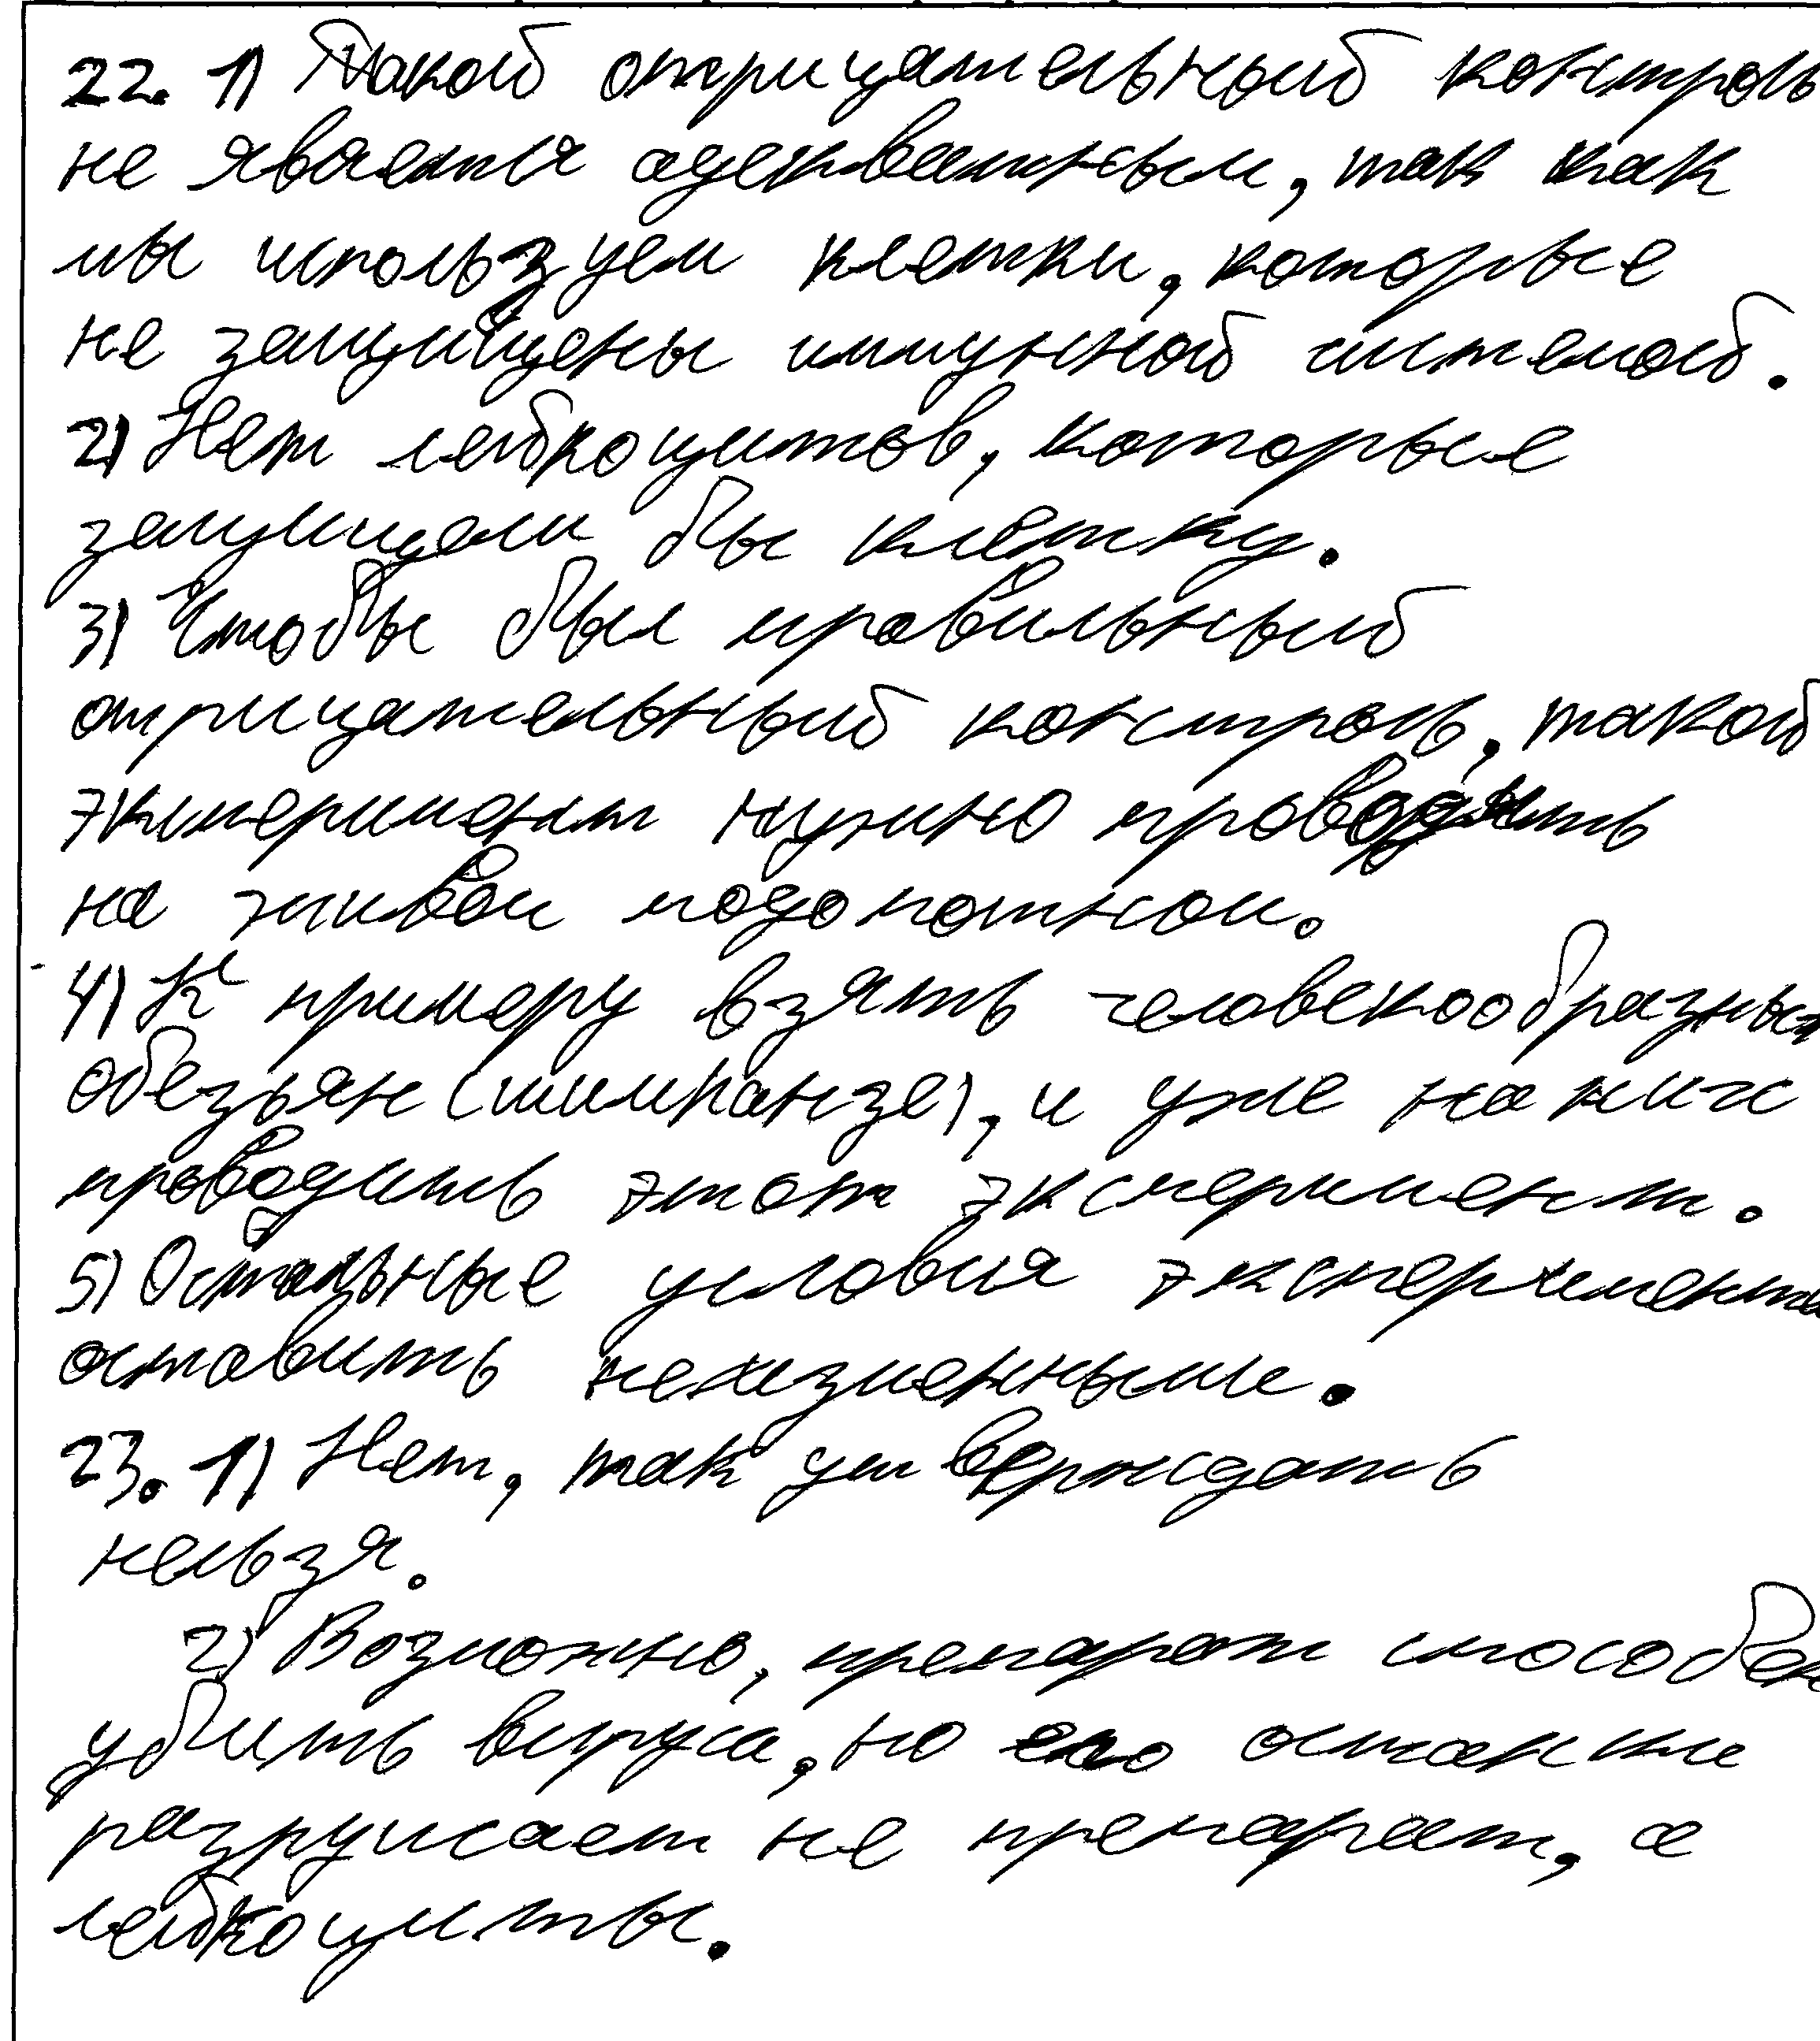 22. 1) Такой отрицательный контроль
не является адекватным, так как
мы используем клетки, которые
не защищены иммунной системой.
2) Нет лейкоцитов, которые
защищали бы клетку.
3) Чтобы был правильный
отрицательный контроль, такой
эксперимент нужно проводить
на живом подопотном.
4) К примеру взять человекообразных
обезьян (шимпанзе), и уже на них
проводить этот эксперимент.
5) Остальные условия эксперимента
оставить неизменными.
23. 1) Нет, так утверждать
нельзя.
2) Возможно, препарат способен
убить вируса, но его останки
разрушает не препарат, а
лейкоциты.